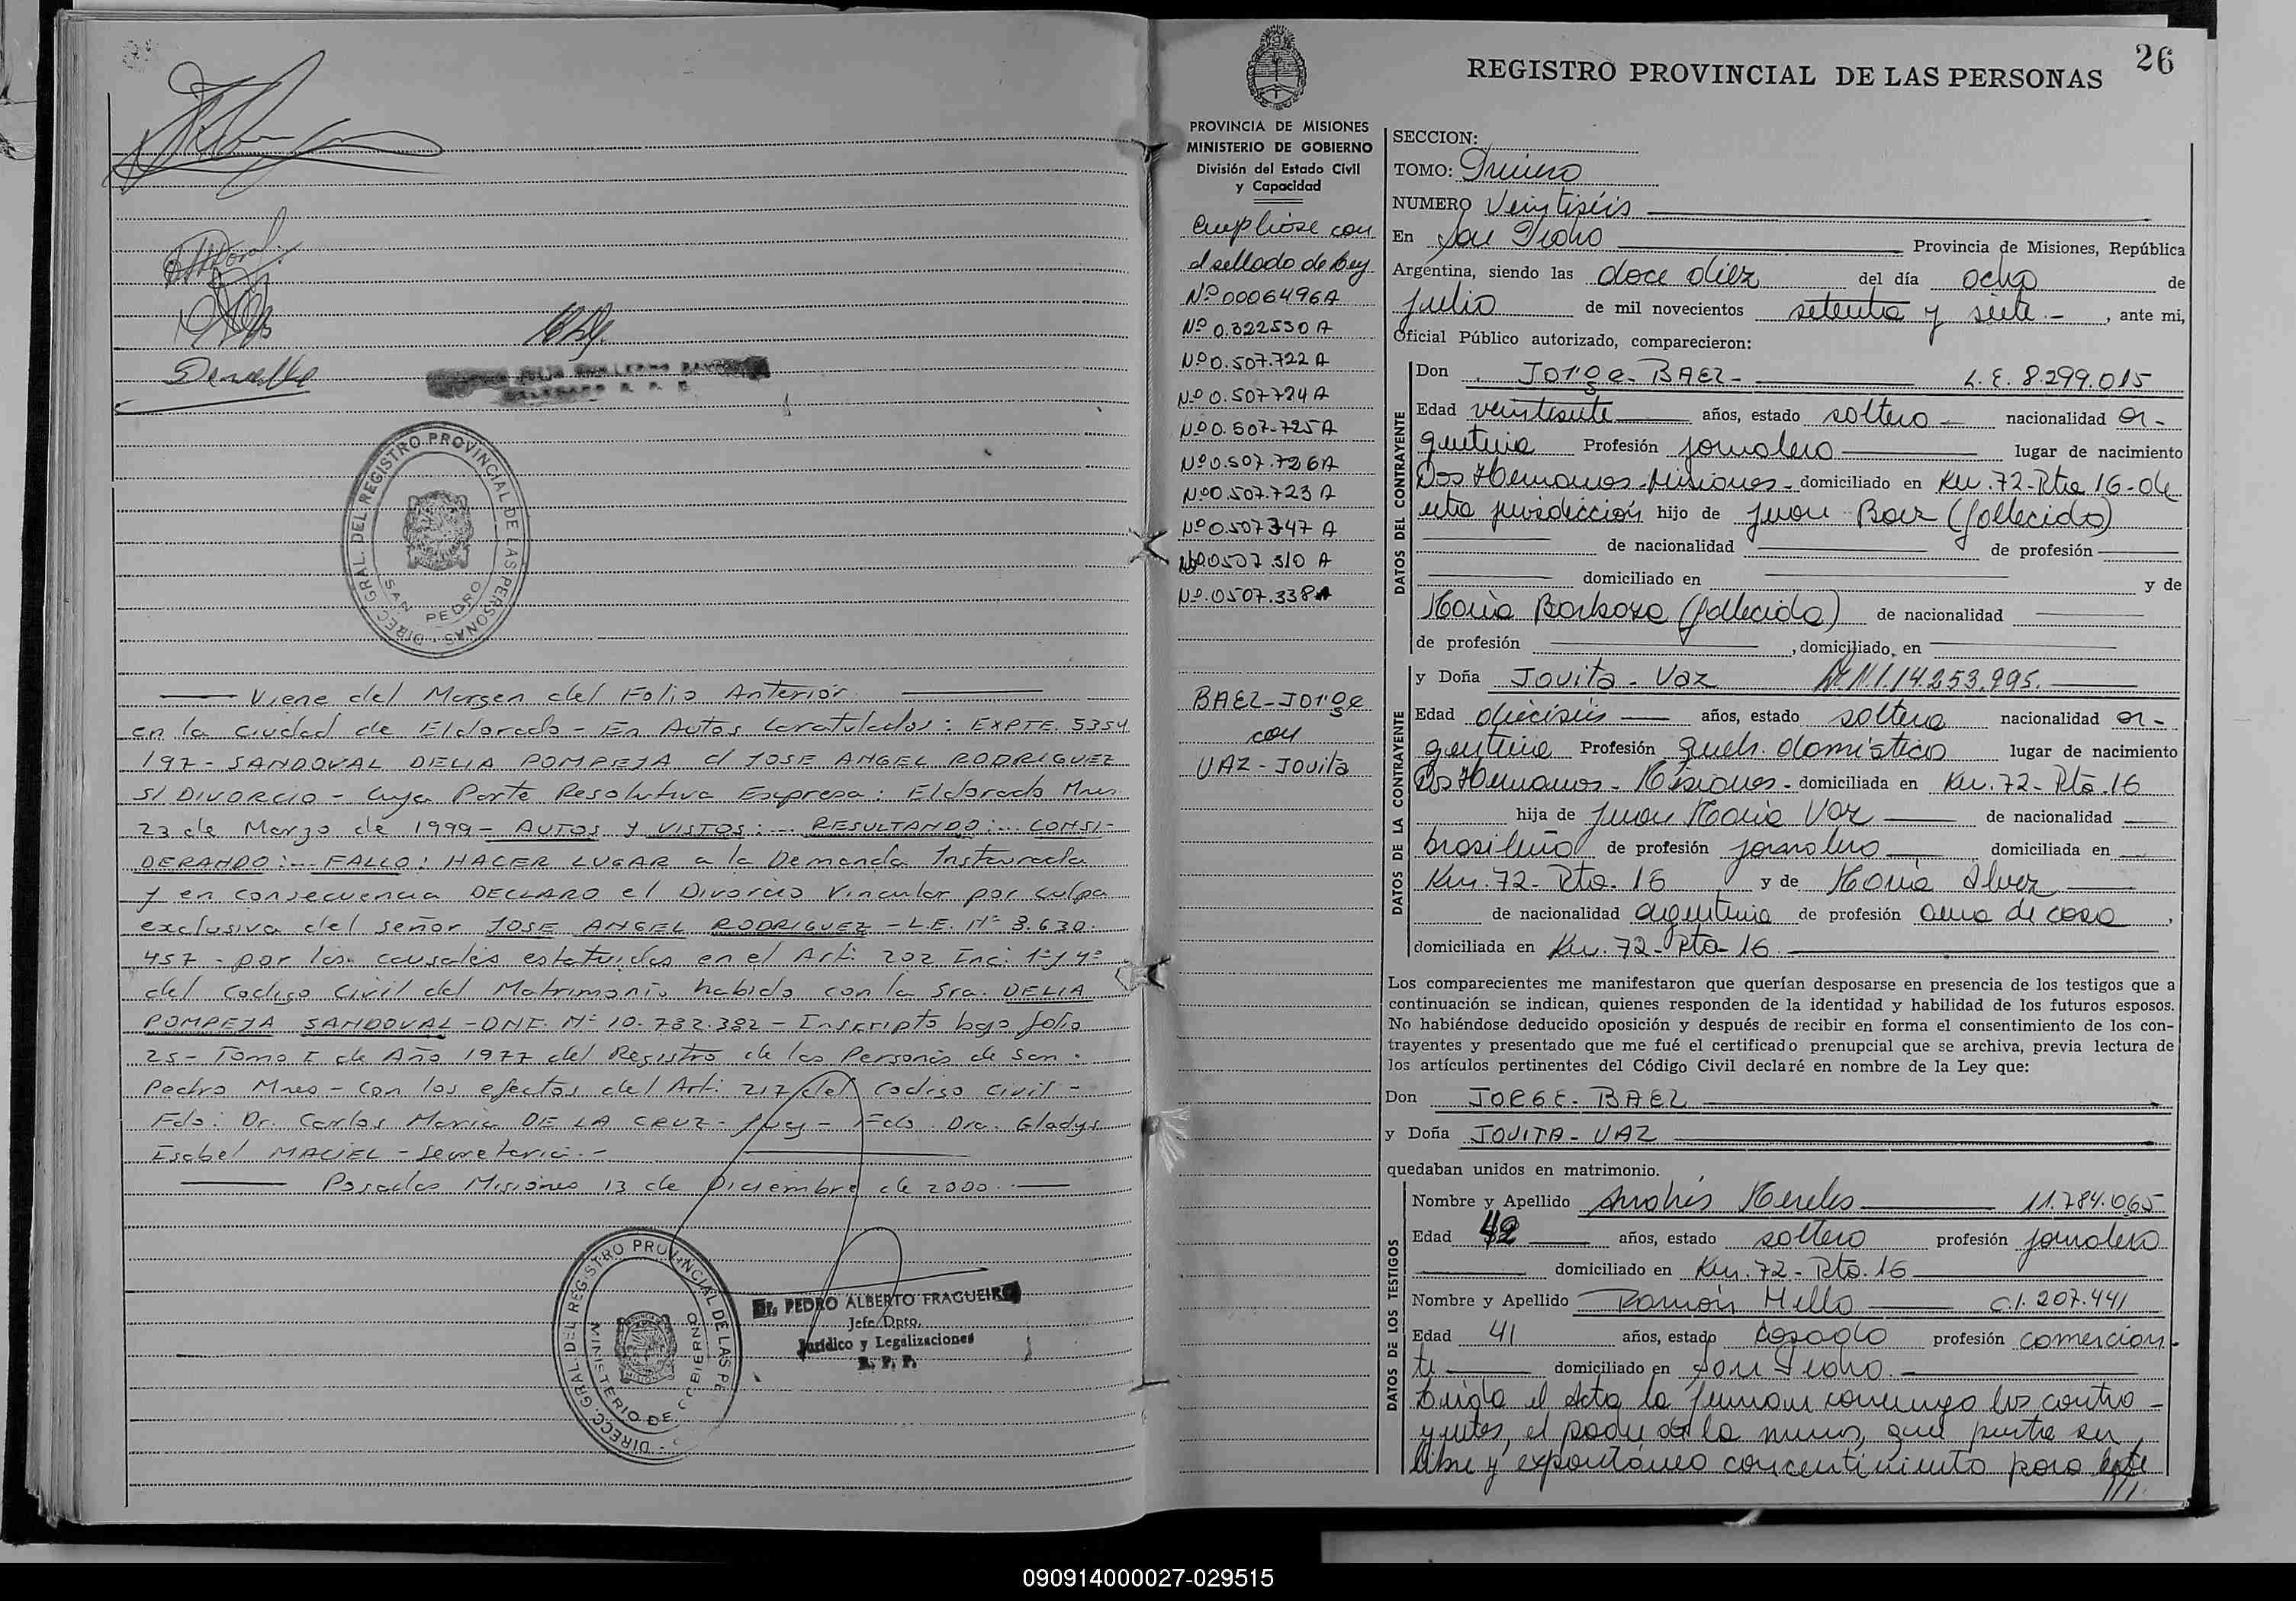 DIREC. GRAL. DEL REGISTRO PROVINCIAL DE LAS PERSONAS
SAN PEDRO
Viene del Margen del Folio Anterior.
en la Ciudad de Eldorado - En Autos Caratulados: EXPTE. 5354
197 - SANDOVAL DELIA POMPEJA c/ JOSE ANGEL RODRIGUEZ
S/ DIVORCIO - Cuya Parte Resolutiva Expresa: Eldorado Mnes
23 de Marzo de 1999 - AUTOS Y VISTOS:... RESULTANDO:... CONSI-
DERANDO:... FALLO: HACER LUGAR a la Demanda Instaurada
y en consecuencia DECLARO el Divorcio Vincular por culpa
exclusiva del señor JOSE ANGEL RODRIGUEZ - L.E. Nº 8.630.
457 - por las causales estatuidas en el Art: 202 Inc: 1º y 4º
del Codigo Civil del Matrimonio habido con la Sra. DELIA
POMPEJA SANDOVAL - DNI. Nº 10.782.382 - Inscripto bajo folio
25 - Tomo I de Año 1977 del Registro de las Personas de San
Pedro Mnes - Con los efectos del Art: 217 del Codigo Civil -
Fdo: Dr. Carlos Maria DE LA CRUZ - Juez - Fdo. Dra. Gladys
Isabel MACIEL - Secretaria. -
Posadas Misiones 13 de Diciembre de 2000. -
DIREC. GRAL. DEL REGISTRO PROVINCIAL DE LAS PE
MINISTERIO DE GOBIERNO
Dr. PEDRO ALBERTO FRAGUEIRO
Jefe Dpto.
Jurídico y Legalizaciones
R. P. P.
26
REGISTRO PROVINCIAL DE LAS PERSONAS
PROVINCIA DE MISIONES
MINISTERIO DE GOBIERNO
División del Estado Civil
y Capacidad
Cumplióse con
el sellado de Ley
Nº 0006496A
Nº 0.322530 A
Nº 0.507.722 A
Nº 0.507724 A
Nº 0.507-725 A
Nº 0.507.726 A
Nº 0.507.723 A
Nº 0.507347 A
Nº 0507.310 A
Nº 0507.338 A
BAEZ - Jorge
con
VAZ - Jovita
SECCION:
TOMO: Primero
NUMERO Veintiséis
En San Pedro Provincia de Misiones, República
Argentina, siendo las doce diez del día ocho de
Julio de mil novecientos setenta y siete.- , ante mi,
Oficial Público autorizado, comparecieron:
DATOS DEL CONTRAYENTE
Don Jorge - BAEZ - L.E. 8.299.015
Edad veintisiete años, estado soltero nacionalidad ar-
gentina Profesión jornalero lugar de nacimiento
Dos Hermanos - Misiones - domiciliado en Km. 72 - Rta 16 - de
esta jurisdicción hijo de Juan Baez (fallecido)
de nacionalidad de profesión
domiciliado en y de
María Barboza (fallecida) de nacionalidad
de profesión , domiciliado, en
DATOS DE LA CONTRAYENTE
y Doña Jovita - Vaz D.N.I. 14.253.995.
Edad dieciséis años, estado soltera nacionalidad ar-
gentina Profesión Queh. domistico lugar de nacimiento
Dos Hermanos - Misiones - domiciliada en Km. 72 - Rta. 16
hija de Juan María Vaz de nacionalidad
brasileño de profesión jornalero domiciliada en
Km. 72 - Rta. 16 y de María Alvez
de nacionalidad argentina de profesión ama de casa ,
domiciliada en Km. 72 - Rta - 16.
Los comparecientes me manifestaron que querían desposarse en presencia de los testigos que a
continuación se indican, quienes responden de la identidad y habilidad de los futuros esposos.
No habiéndose deducido oposición y después de recibir en forma el consentimiento de los con-
trayentes y presentado que me fué el certificado prenupcial que se archiva, previa lectura de
los artículos pertinentes del Código Civil declaré en nombre de la Ley que:
Don JORGE - BAEZ
y Doña JOVITA - VAZ
quedaban unidos en matrimonio.
DATOS DE LOS TESTIGOS
Nombre y Apellido Andrés Mereles 11.784.065
Edad 42 años, estado soltero profesión jornalero
domiciliado en Km. 72 - Rta. 16
Nombre y Apellido Ramón Mello C.I. 207.441
Edad 41 años, estado casado profesión comercian-
te domiciliado en San Pedro.
Leída el Acta la firman conmigo los contra-
yentes, el padre de la menor, que presta su
libre y expontáneo concentimiento para este
///.
090914000027-029515